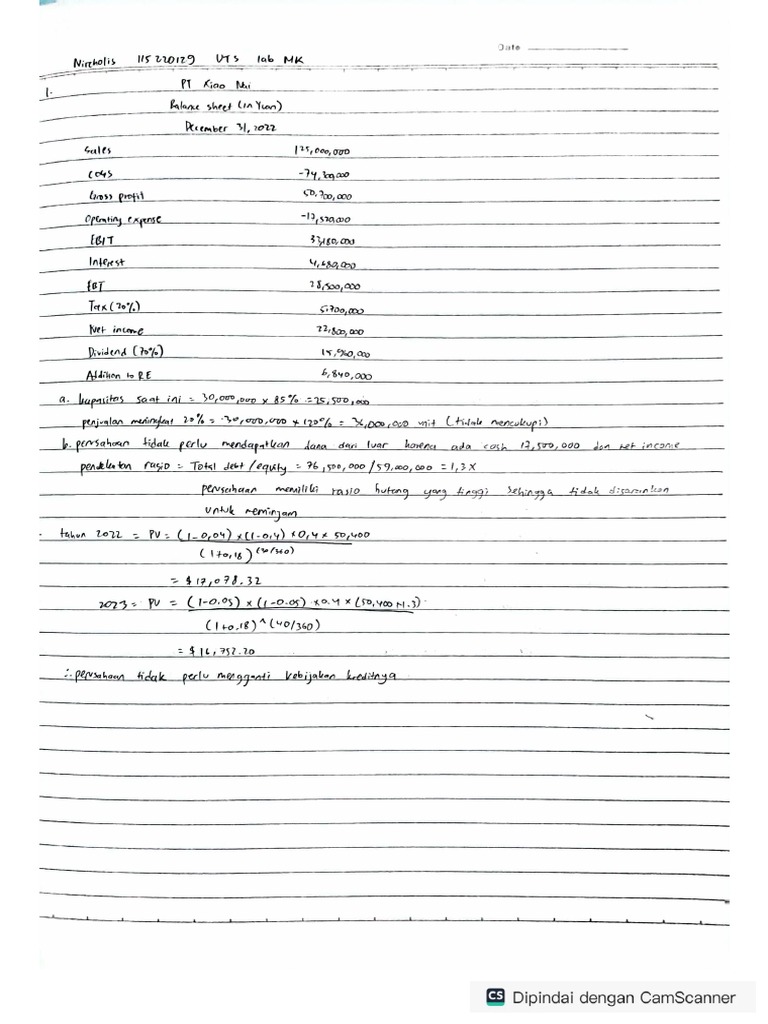 Date
Nicholis 115220129 UTS lab MK
1.
PT Xiao Nai
Balance sheet (in Yuan)
December 31, 2022
Sales 125,000,000
COGS -74,300,000
Gross profit 50,700,000
Operating expense -17,520,000
EBIT 33,180,000
Interest 4,680,000
EBT 28,500,000
Tax (20%) 5,700,000
Net income 22,800,000
Dividend (70%) 15,960,000
Addition to RE 6,840,000
a. kapasitas saat ini = 30,000,000 x 85% = 25,500,000
penjualan meningkat 20% = 30,000,000 x 120% = 36,000,000 unit (tidak mencukupi)
b. perusahaan tidak perlu mendapatkan dana dari luar karena ada cash 17,500,000 dan net income
pendekatan rasio = Total debt / equity = 76,500,000 / 59,000,000 = 1,3 x
perusahaan memiliki rasio hutang yang tinggi sehingga tidak disarankan
untuk meminjam
. tahun 2022 = PV = (1-0,04) x (1-0,4) x 0,4 x 50,400
(1+0,18)^(30/360)
= $ 17,078.32
2023 = PV = (1-0.05) x (1-0.05) x 0.4 x (50,400 x 1.3)
(1+0.18)^(40/360)
= $ 16,752.20
∴ perusahaan tidak perlu mengganti kebijakan kreditnya
CS Dipindai dengan CamScanner